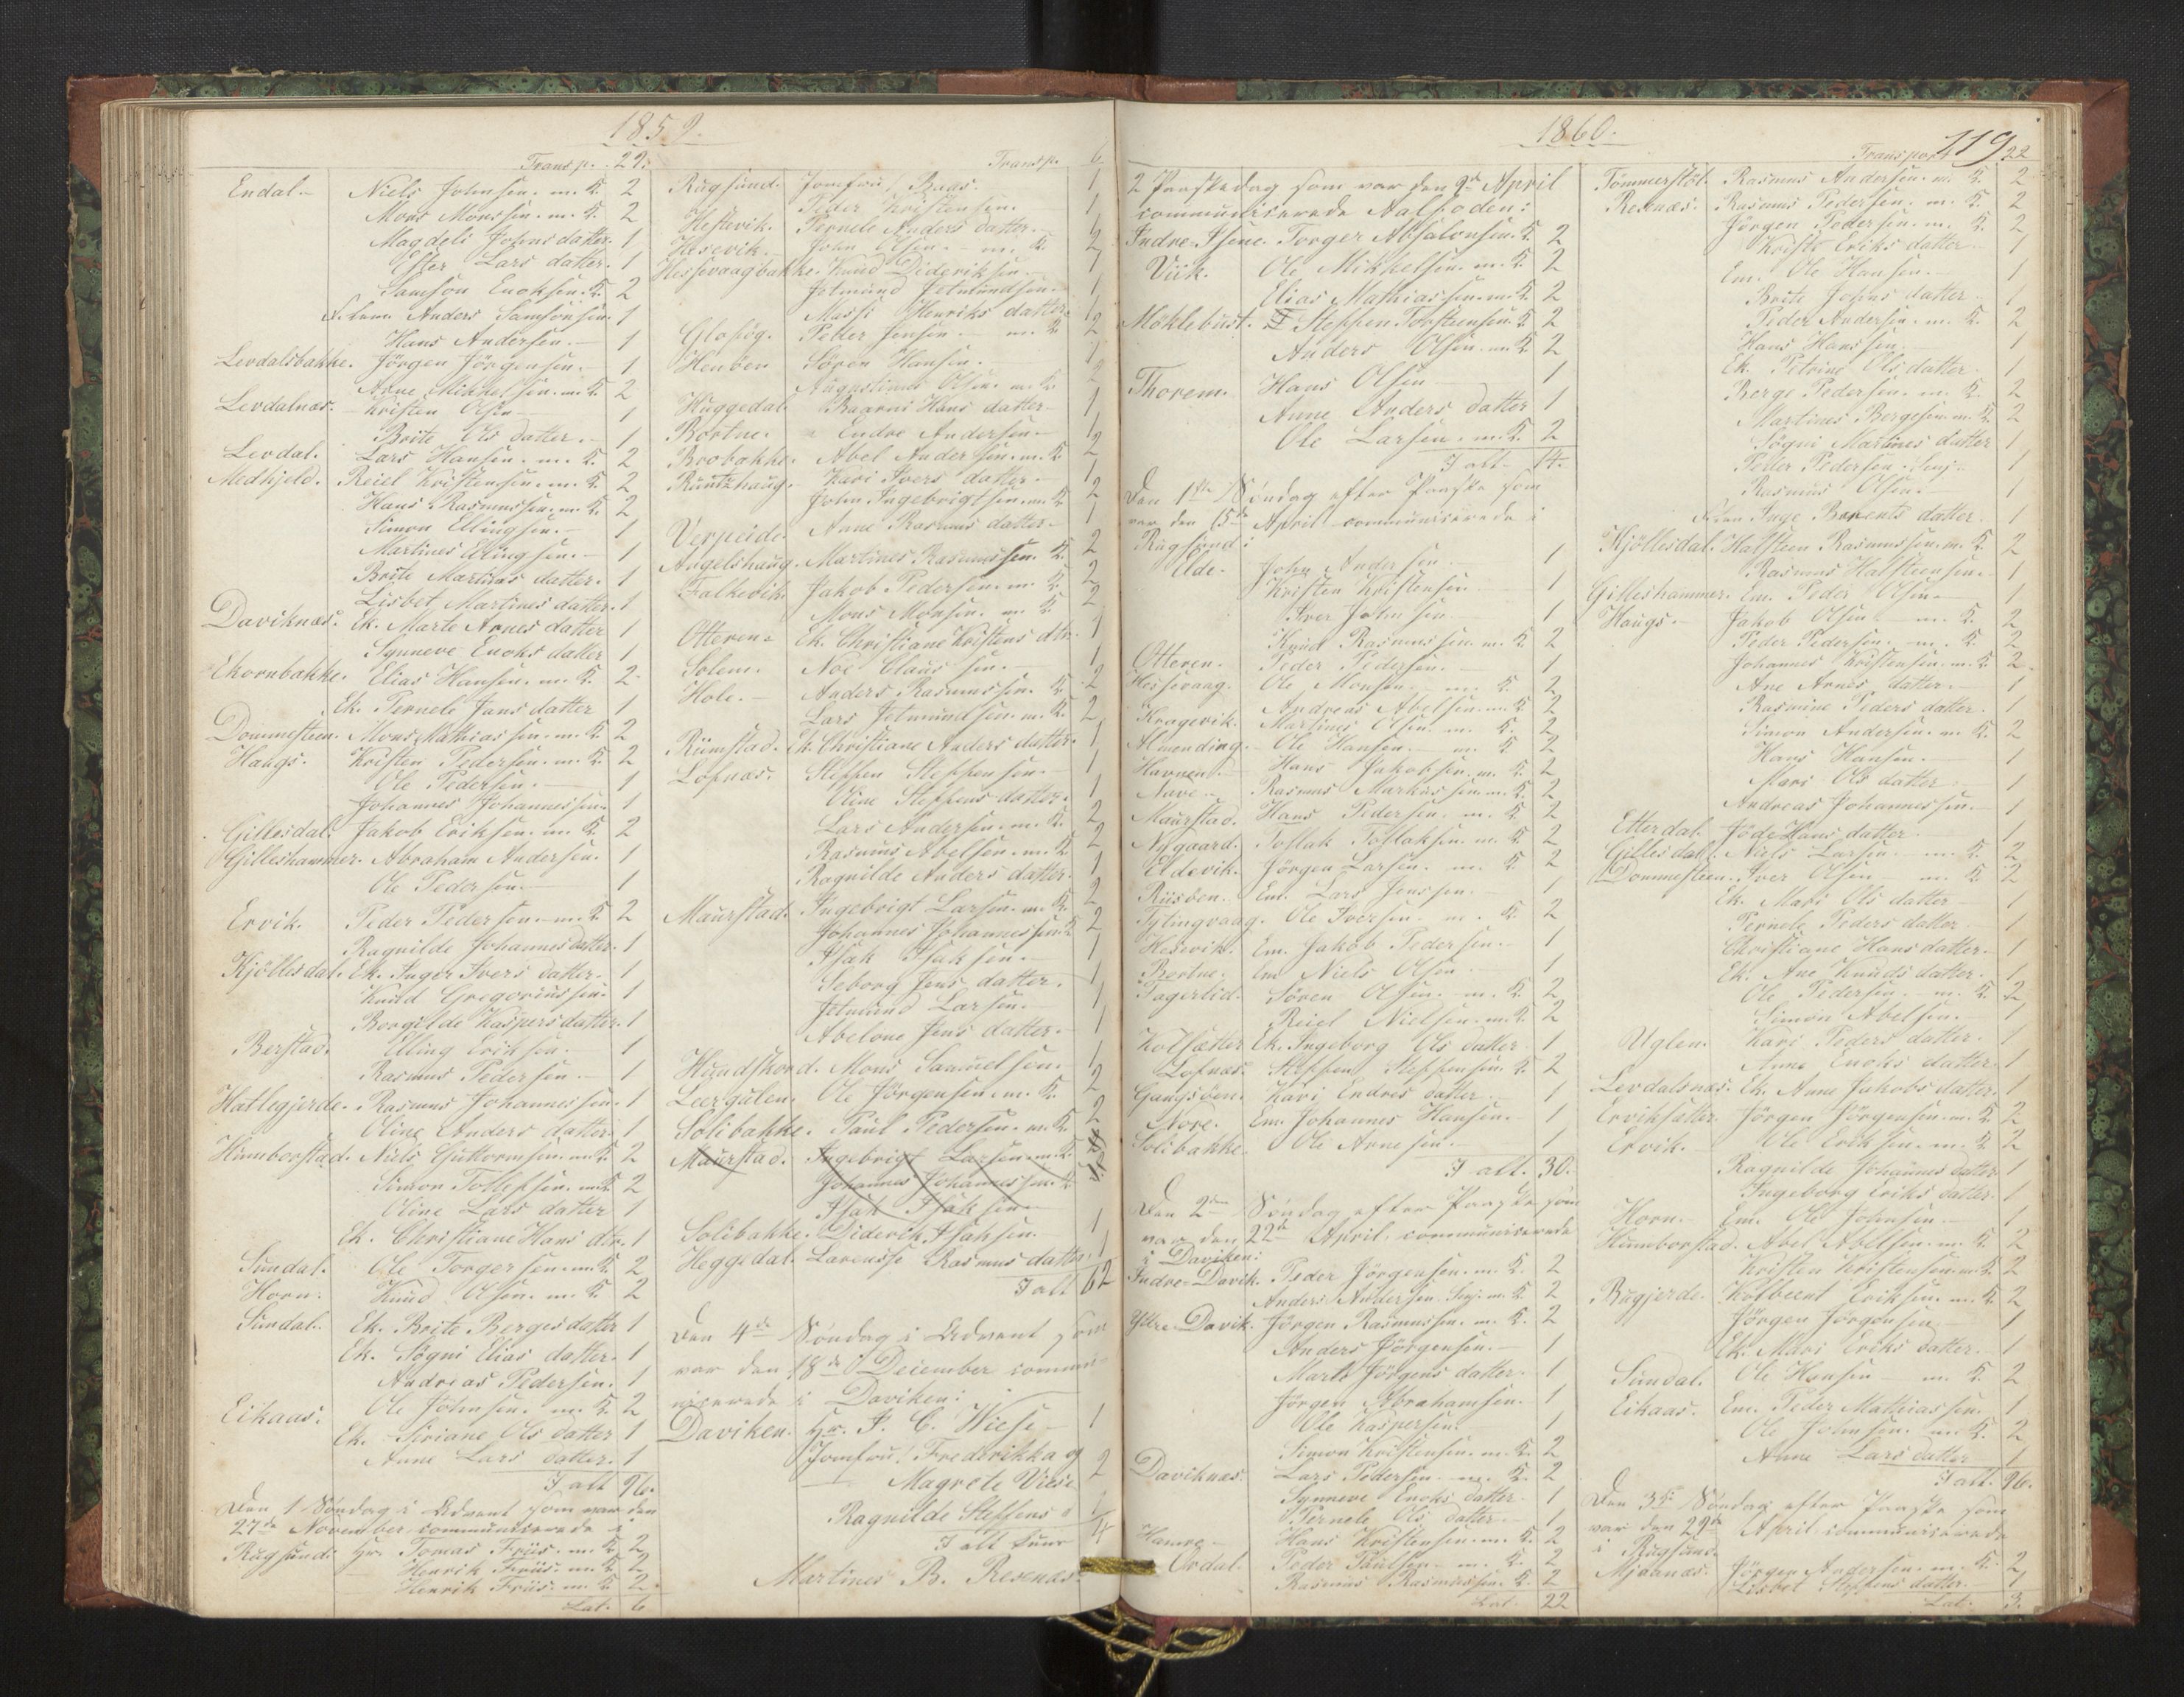 1859.
Transp. 22.
Endal. Niels Johnsen. m. K. 2
Mons Monssen. m. K. 2
Magdeli Johns datter. 1
Ester Lars datter. 1
Samson Enoksen. K. 2
Anders Samsonsen. 1
Hans Andersen. 1
Levdalsbakke. Jörgen Jörgensen. 1
Arne Mikkelsen. m. K. 2
Levdalnæs. Kristen Olsen 1
Brite Ols datter. 1
Levdal. Lars Hansen. m. K. 2
Medhjeld. Reiel Kristensen. m. K. 2
Hans Rasmussen. m. K. 2
Simon Ellingsen. 1
Martines Ellingsen. 1
Brite Martines datter. 1
Lisbet Martines datter. 1
Daviknæs. Ek. Marte Arnes datter 1
Synneve Enoks datter 1
Ekornbakke. Elias Hansen. m. K. 2
Ek. Pernele Jans datter 1
Dommesteen. Mons Mathiassen. m. K. 2
Haugs. Kristen Pedersen. m. K. 2
Ole Pedersen. 1
Johannes Johannessen. 1
Gillesdal. Jakob Eriksen. m. K. 2
Gilleshammer. Abraham Andersen. 1
Ole Pedersen. 1
Ervik. Peder Pedersen. m. K. 2
Ragnilde Johannes datter. 1
Kjöllesdal. Ek. Inger Ivers datter. 1
Knud Gregoriussen. 1
Borgilde Kaspers datter. 1
Berstad. Elling Eriksen. 1
Rasmus Pedersen. 1
Hatlegjerde. Rasmus Johannessen. 1
Oline Anders datter. 1
Humborstad. Niels Guttormsen. m. K. 2
Simon Tollefsen. m. K. 2
Oline Lars datter 1
Ek. Christiane Hans dtr. 1
Sundal. Ole Torgersen. m. K. 2
Horn. Knud Olsen. m. K. 2
Sundal. Ek. Brite Berges datter 1
Ek. Sögni Elias datter. 1
Andreas Pedersen. 1
Eikaas. Ole Johnsen. m. K. 2
Ek. Siriane Ols datter 1
Anne Lars datter. 1
I alt 96.
Den 1 Söndag i Advent som var den
27de November communiserede i
Rugsund: Hr. Tomas Friis. m. K. 2
Henrik Friis. m. K. 2
Henrik Friis. m. K. 2
Lat. 6
Transp. 6
Rugsund. Jomfru Baas. 1
Peder Kristensen. 1
Hestevik. Pernele Anders datter.
Hesevik. John Olsen. m. K. 2
Hessevaagbakke. Knud Dideriksen. 1
Jetmund Jetmundsen. 1
Massi Henriks datter. 1
Peder Jensen. m. K. 2
Henöen Sören Hansen. 1
Augustinus Olsen. m. K. 2
Huggedal. Hans datter 1
Bortne. Endre Andersen. 1
Brobakke. Abel Andersen. m. K. 2
Runtzhaug. Kari Ivers datter. 1
John Ingebrigtsen. m. K. 2
Verpeide. Anne Rasmus datter. 1
Angelshaug. Martines Rasmussen. K. 2
Falkevik. Jakob Pedersen. m. K. 2
Mons Monsen. m. K. 2
Otteren. Ek. Christiane Kristens dtr. 1
Solem. Noe Claussen. 1
Hole. Anders Rasmussen. K. 2
Lars Jetmundsen. m. K. 2
Rimstad. Ek. Christiane Anders datter. 1
Lofnæs. Steffen Steffensen. 1
Oline Steffens datter. 1
Lars Andersen. m. K. 2
Rasmus Abelsen. m. K. 2
Ragnilde Anders datter. 1
Maurstad. Ingebrigt Larsen. m. K. 2
Johannes Johannessen. K. 2
Isak Isaksen. 1
Seborg Jens datter. 1
Jetmund Larsen. 1
Abelone Jens datter. 1
Hundskond. Mons Samuelsen. 1
Leergulen. Ole Jörgensen. m. K. 2
Solibakke. Paul Pedersen. m. K. 2
Maurstad. Ingebrigt Larsen. m. K.
Johannes Johannessen. K.
Isak Isaksen
Solibakke. Diderik Isaksen. 1
Heggedal. Lorensse Rasmus datter. 1
I alt 62
Den 4de Söndag i Advent som
var den 18de December commu-
niserede i Daviken:
Daviken. Hr. F. C. Wiese 1
Jomfru Frederikka og
Magrete Viese 2
Ragnilde Steffens d 1
I alt Sum 4
Martines B. Resenæs.
1860.
119
2 Paaskedag som var den 9de April
communiserede Aalfoden:
Indre-Isene. Torger Absalonsen. K. 2
Viik. Ole Mikkelsen. m. K. 2
Elias Mathiassen. m. K. 2
Möklebust. Steffen Torsteensen. K. 2
Anders Olsen. m. K. 2
Thorem. Hans Olsen 1
Anne Anders datter 1
Ole Larsen. m. K. 2
I alt 14.
Den 1ste Söndag efter Paaske som
var den 15de April communiserede i
Rugsund:
Ude. John Andersen. 1
Kristen Kristensen 1
Iver Johnsen 1
Knud Rasmussen. m. K. 2
Otteren. Peder Pedersen. 1
Hessevaag. Ole Monsen. m. K. 2
Andreas Abelsen. m. K. 2
Kragevik. Martines Olsen. m. K. 2
Almending. Ole Hansen. m. K. 2
Havnen. Hans Jakobsen. m. K. 2
Nave. Rasmus Markussen. m. K. 2
Maurstad. Hans Pedersen. m. K. 2
Nygaard. Tollak Tollaksen. m. K. 2
Eldevik. Jörgen Larsen. m. K. 2
Riisöen. Em. Lars Jenssen. 1
Tytingvaag. Ole Iversen. m. K. 2
Hesevik. Em. Jakob Pedersen. 1
Bortne. Em. Niels Olsen. 1
Fagerlid. Sören Olsen. m. K. 2
Reiel Nielsen. m. K. 2
Kolsætter Ek. Ingeborg Ols datter 1
Lofnæs. Steffen Steffensen. K. 2
Gangsöen. Kari Endres datter 1
Nore. Em. Johannes Hansen. 1
Solibakke. Ole Arnesen. 1
I alt. 30.
Den 2den Söndag efter Paaske som
var den 22de April communiserede
i Daviken:
Indre-Davik. Peder Jörgensen. m. K. 2
Anders Andersen Senj. m. K. 2
Ytre Davik. Jörgen Rasmussen. m. K. 2
Anders Jörgensen. 1
Marte Jörgens datter. 1
Jörgen Abrahamsen. 1
Ole Kaspersen. 1
Simon Kristensen. m. K. 2
Daviknæs. Lars Pedersen. m. K. 2
Synneve Enoks datter. 1
Pernele Ols datter. 1
Hamre. Hans Kristensen. m. K. 2
Ordal. Peder Paulsen. m. K. 2
Rasmus Rasmussen. K. 2
Lat. 22
Transport 22
Tömmerstöl. Rasmus Andersen. m. K. 2
Resenæs. Rasmus Pedersen. m. K. 2
Jörgen Pedersen. m. K. 2
Eriks datter 1
Em. Ole Hansen. 1
Brite Johns datter 1
Peder Andersen. m. K. 2
Hans Hanssen. 1
Ek. Petrine Ols datter 1
Berge Pedersen. m. K. 2
Martines Bergesen. m. K. 2
Sögni Martines datter 1
Peder Pedersen. Senj. 1
Rasmus Olsen. 1
Inge Berents datter. 1
Kjöllesdal. Halsteen Rasmussen. m. K. 2
Rasmus Halsteensen. 1
Gilleshammer. Em. Peder Olsen. 1
Haugs. Jakob Olsen. m. K. 2
Peder Pedersen. m. K. 2
Johannes Kristensen. m. K. 2
Ane Arnes datter. 1
Rasmine Peders datter. 1
Simon Andersen. m. K. 2
Hans Hansen. 1
Mari Ols datter 1
Andreas Johannessen. 1
Etterdal. Jöde Hans datter. 1
Gillesdal. Niels Larsen. m. K. 2
Dommesteen. Iver Olsen. m. K. 2
Ek. Mari Ols datter 1
Pernele Peders datter 1
Christiane Hans datter. 1
Ek. Ane Knuds datter. 1
Ole Pedersen. m. K. 2
Simon Abelsen. 1
Uglen. Kari Peders datter. 1
Anne Enoks datter. 1
Levdalsnæs. Ek. Anne Jakobs datter. 1
Erviksætter. Jörgen Jörgensen. m. K. 2
Ervik. Ole Eriksen. m. K. 2
Ragnilde Johannes datter 1
Ingeborg Eriks datter. 1
Horn. Em. Ole Johnsen. 1
Humborstad. Abel Abelsen. m. K. 2
Kristen Kristensen. m. K. 2
Rugjerde. Kolbeent Eriksen. m. K. 2
Jörgen Jörgensen 1
Ek. Mari Eriks datter. 1
Sundal. Ole Hansen. m. K. 2
Eikaas. Em. Peder Mathiassen. 1
Ole Johnsen. m. K. 2
Anne Lars datter 1
I alt. 96.
Den 3die Söndag efter Paaske som
var den 29de April communiserede
i Rugsund.
Mjaanæs. Jörgen Andersen. m. K. 2
Lisbet Steffens datter. 1
Lat. 3.